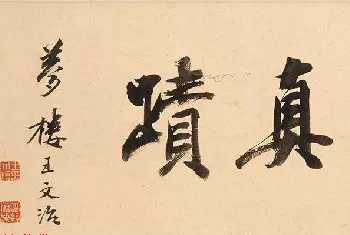 真蹟
夢樓王文治